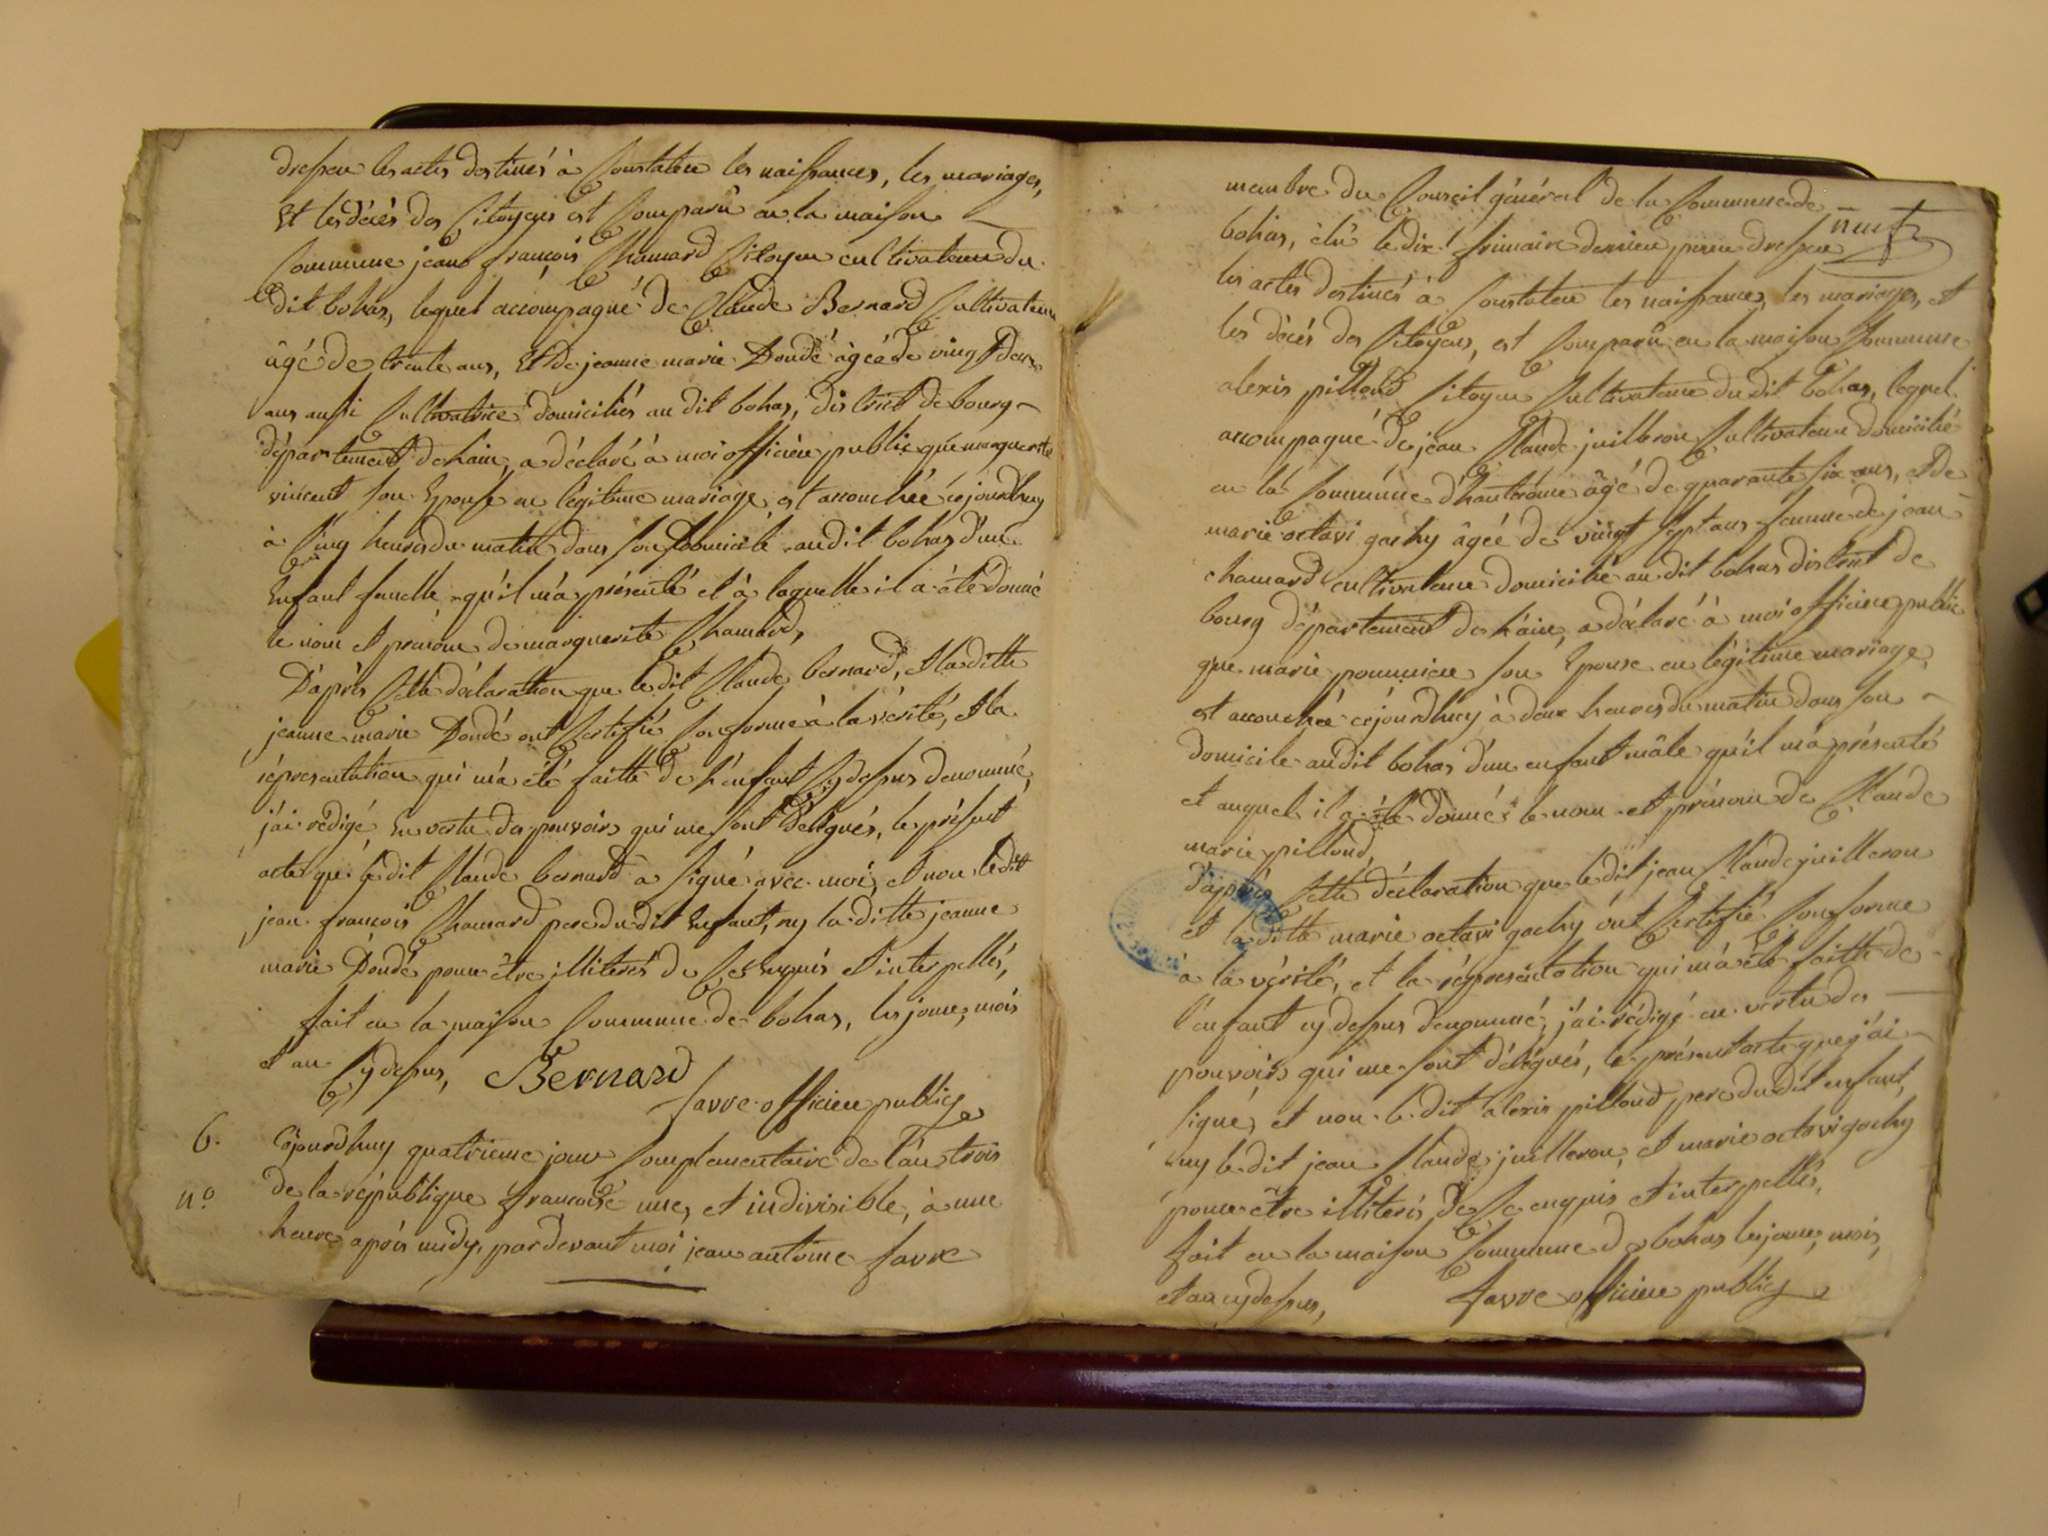 dresser les actes destinés à Constater les naissances, les mariages,
Et les décés des Citoyens est Comparû en la maison
Commune jean françois Chamard Citoyen cultivateur du
dit bohas, lequel accompagné de Claude Bernard Cultivateur
âgé de trente ans, Et de jeanne marie Dondé âgée de vingt deux
ans aussi Cultivatrice domiciliés au dit bohas, district de bourg
département de hain, a déclaré à moi officier public que marguerite
vincent son Epouse en légitime mariage, est accouchée cejourdhuy
à Cinq heures du matin dans son domicile audit bohas d'un
Enfant femelle qu'il m'a présenté et à laquelle il a été donné
le nom et prénom de marguerite Chamard,
D'après Cette déclaration que le dit Claude bernard, Et la ditte
jeanne marie Dondé ont Certifié Conforme à la vérité, Et la
représentation qui m'a été faitte de l'enfant Cy dessus denommé,
j'ai rédigé, En vertu des pouvoirs qui me sont Délégués, le présent
acte que le dit Claude bernard a signé avec moi, et non le dit
jean françois Chamard pere du dit Enfant, ny la ditte jeanne
marie Dondé pour être illiterés de Ce Enquis et interpellés,
fait en la maison Commune de bohas, les jour, mois
et an Cy dessus, Bernard
favre officier public
6. Cejourdhuy quatrieme jour Complementaire de l'an trois
n.o de la république francoise une, et indivisible, à une
heure après midy, pardevant moi jean antoine favre
membre du Conseil général de la Commune de
neuf
bohas, élû le dix frimaire dernier pour dresser
les actes destinés à Constater les naissances, les mariages, et
les décés des Citoyens, est Comparû en la maison Commune
alexis pilloud Citoyen Cultivateur du dit bohas, lequel
accompagné de jean Claude juilleron Cultivateur domicilié
en la Commune d'hautecome âgé de quarante six ans, et de
marie octavi gachy âgée de vingt sept ans femme de jean
chamard cultivateur domicilié au dit bohas district de
bourg département de l'ain, a déclaré à moi officier public
que marie pommier son Epouse en légitime mariage,
est accouchée cejourdhuy à deux heures du matin dans son
domicile audit bohas d'un enfant mâle qu'il m'a présenté
et auquel il a été donné le nom et prénom de Claude
marie pilloud,
d'après Cette déclaration que le dit jean Claude juilleron
et la ditte marie octavi gachy ont Certifié Conforme
à la vérité, et la représentation qui m'a été faitte de
l'enfant cy dessus denommé, j'ai rédigé en vertu des
pouvoirs qui me sont délégués, le présent acte que j'ai
signé, et non le dit alexis pilloud pere du dit enfant,
ny le dit jean Claude juilleron, et marie octavi gachy
pour être illiterés de Ce enquis et interpellés,
fait en la maison Commune de bohas les jour, mois,
et an cy dessus, favre officier public